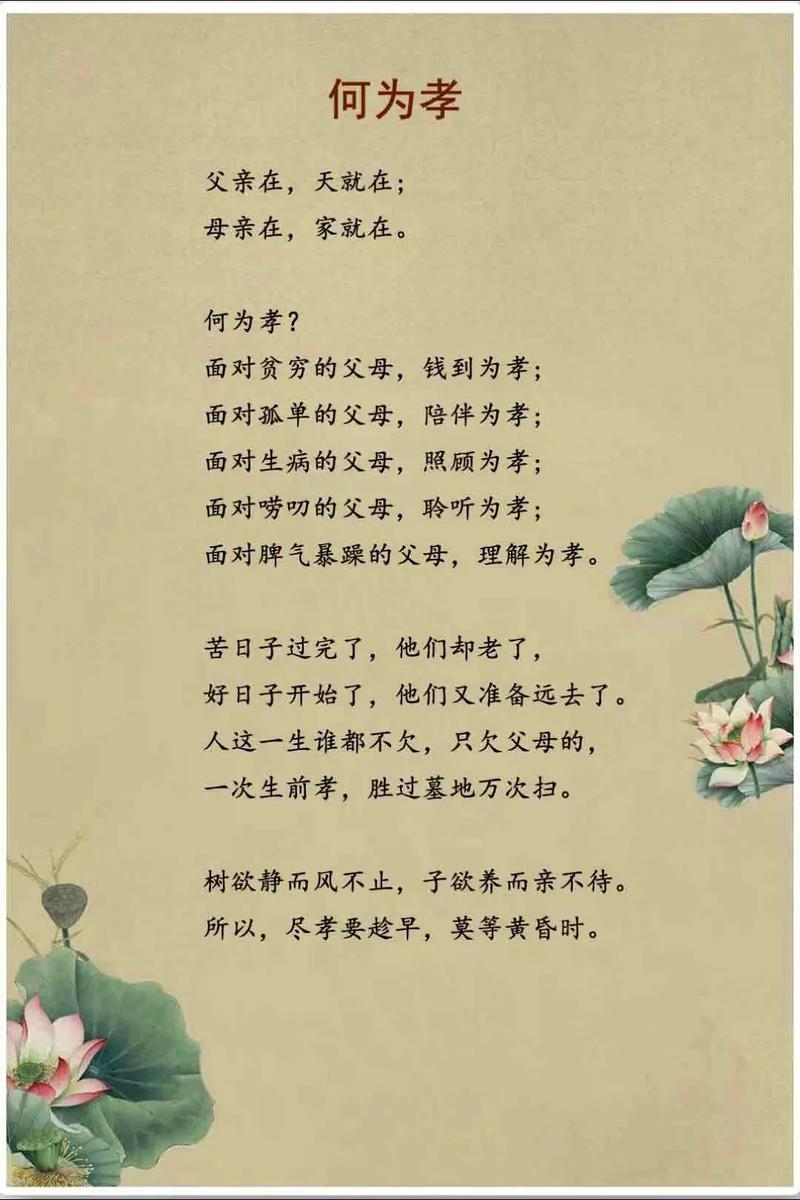 何为孝
父亲在，天就在；
母亲在，家就在。
何为孝？
面对贫穷的父母，钱到为孝；
面对孤单的父母，陪伴为孝；
面对生病的父母，照顾为孝；
面对唠叨的父母，聆听为孝；
面对脾气暴躁的父母，理解为孝。
苦日子过完了，他们却老了，
好日子开始了，他们又准备远去了。
人这一生谁都不欠，只欠父母的，
一次生前孝，胜过墓地万次扫。
树欲静而风不止，子欲养而亲不待。
所以，尽孝要趁早，莫等黄昏时。